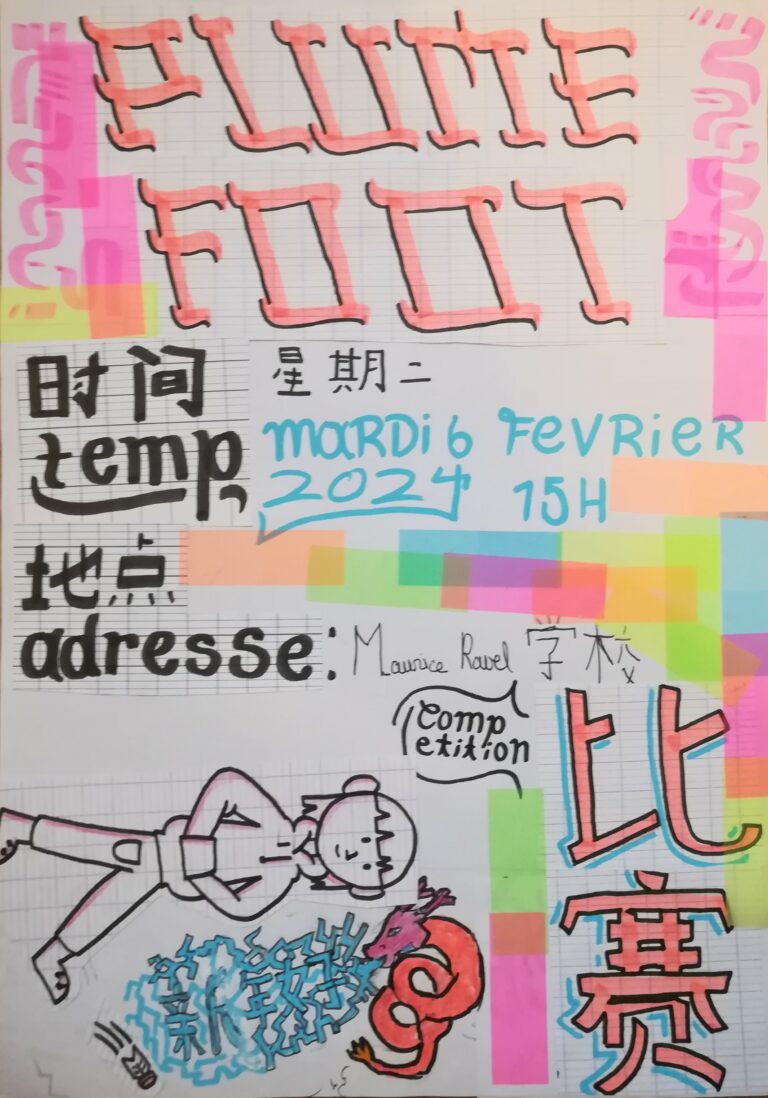 PLUME
FOOT
时间
星期二
temp
MARDI 6 FEVRIER
2024 15H
地点
adresse: Maurice Ravel 学校
comp
etition
比
赛
新年好